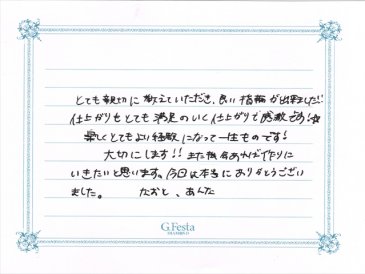 とても親切に教えていただき、良い指輪が出来ました!!
仕上がりもとても満足のいく仕上がりで素敵です!☆
楽しくとてもよい経験になって一生ものです!
大切にします!!また機会あれば作りに
いきたいと思います。今日は本当にありがとうござい
ました。 なおと、あんな
G.Festa